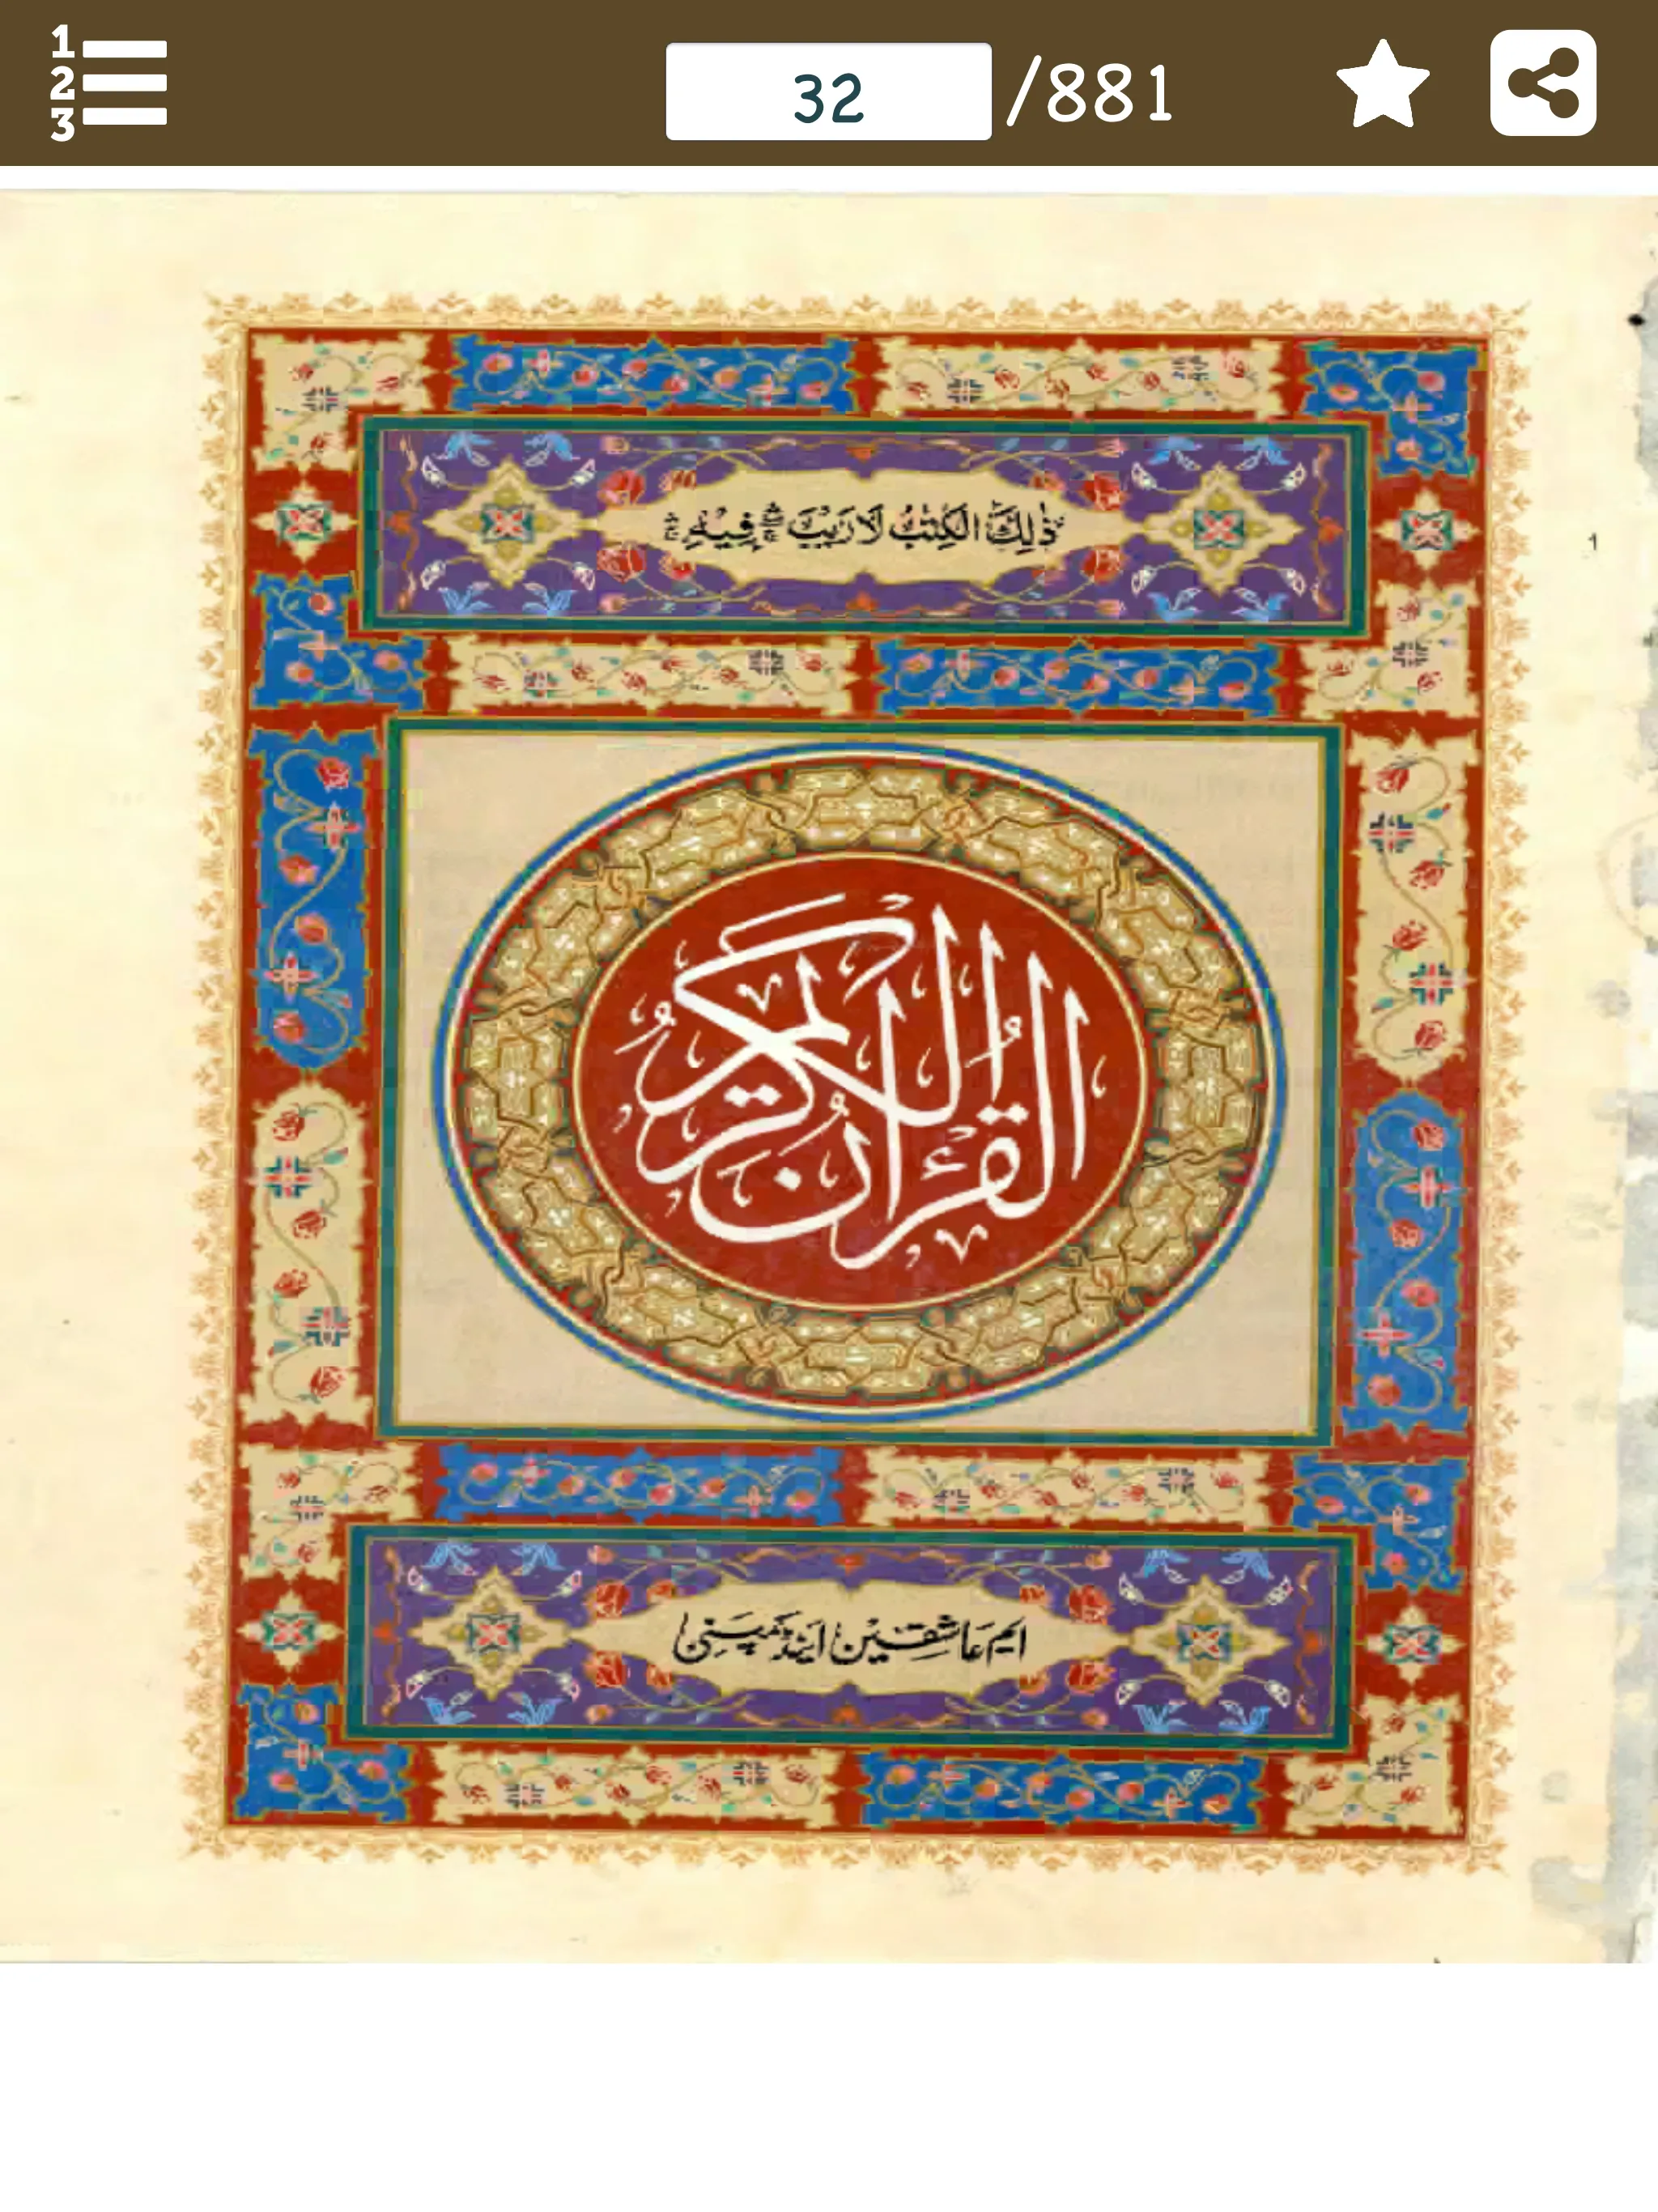 1
2
3
32 /881
ذٰلِكَ الْكِتٰبُ لَا رَيْبَ ۛۖ فِيْهِ ۛۚ
1
القرءان الكريم
ایم عاشقین اینڈ کمپنی